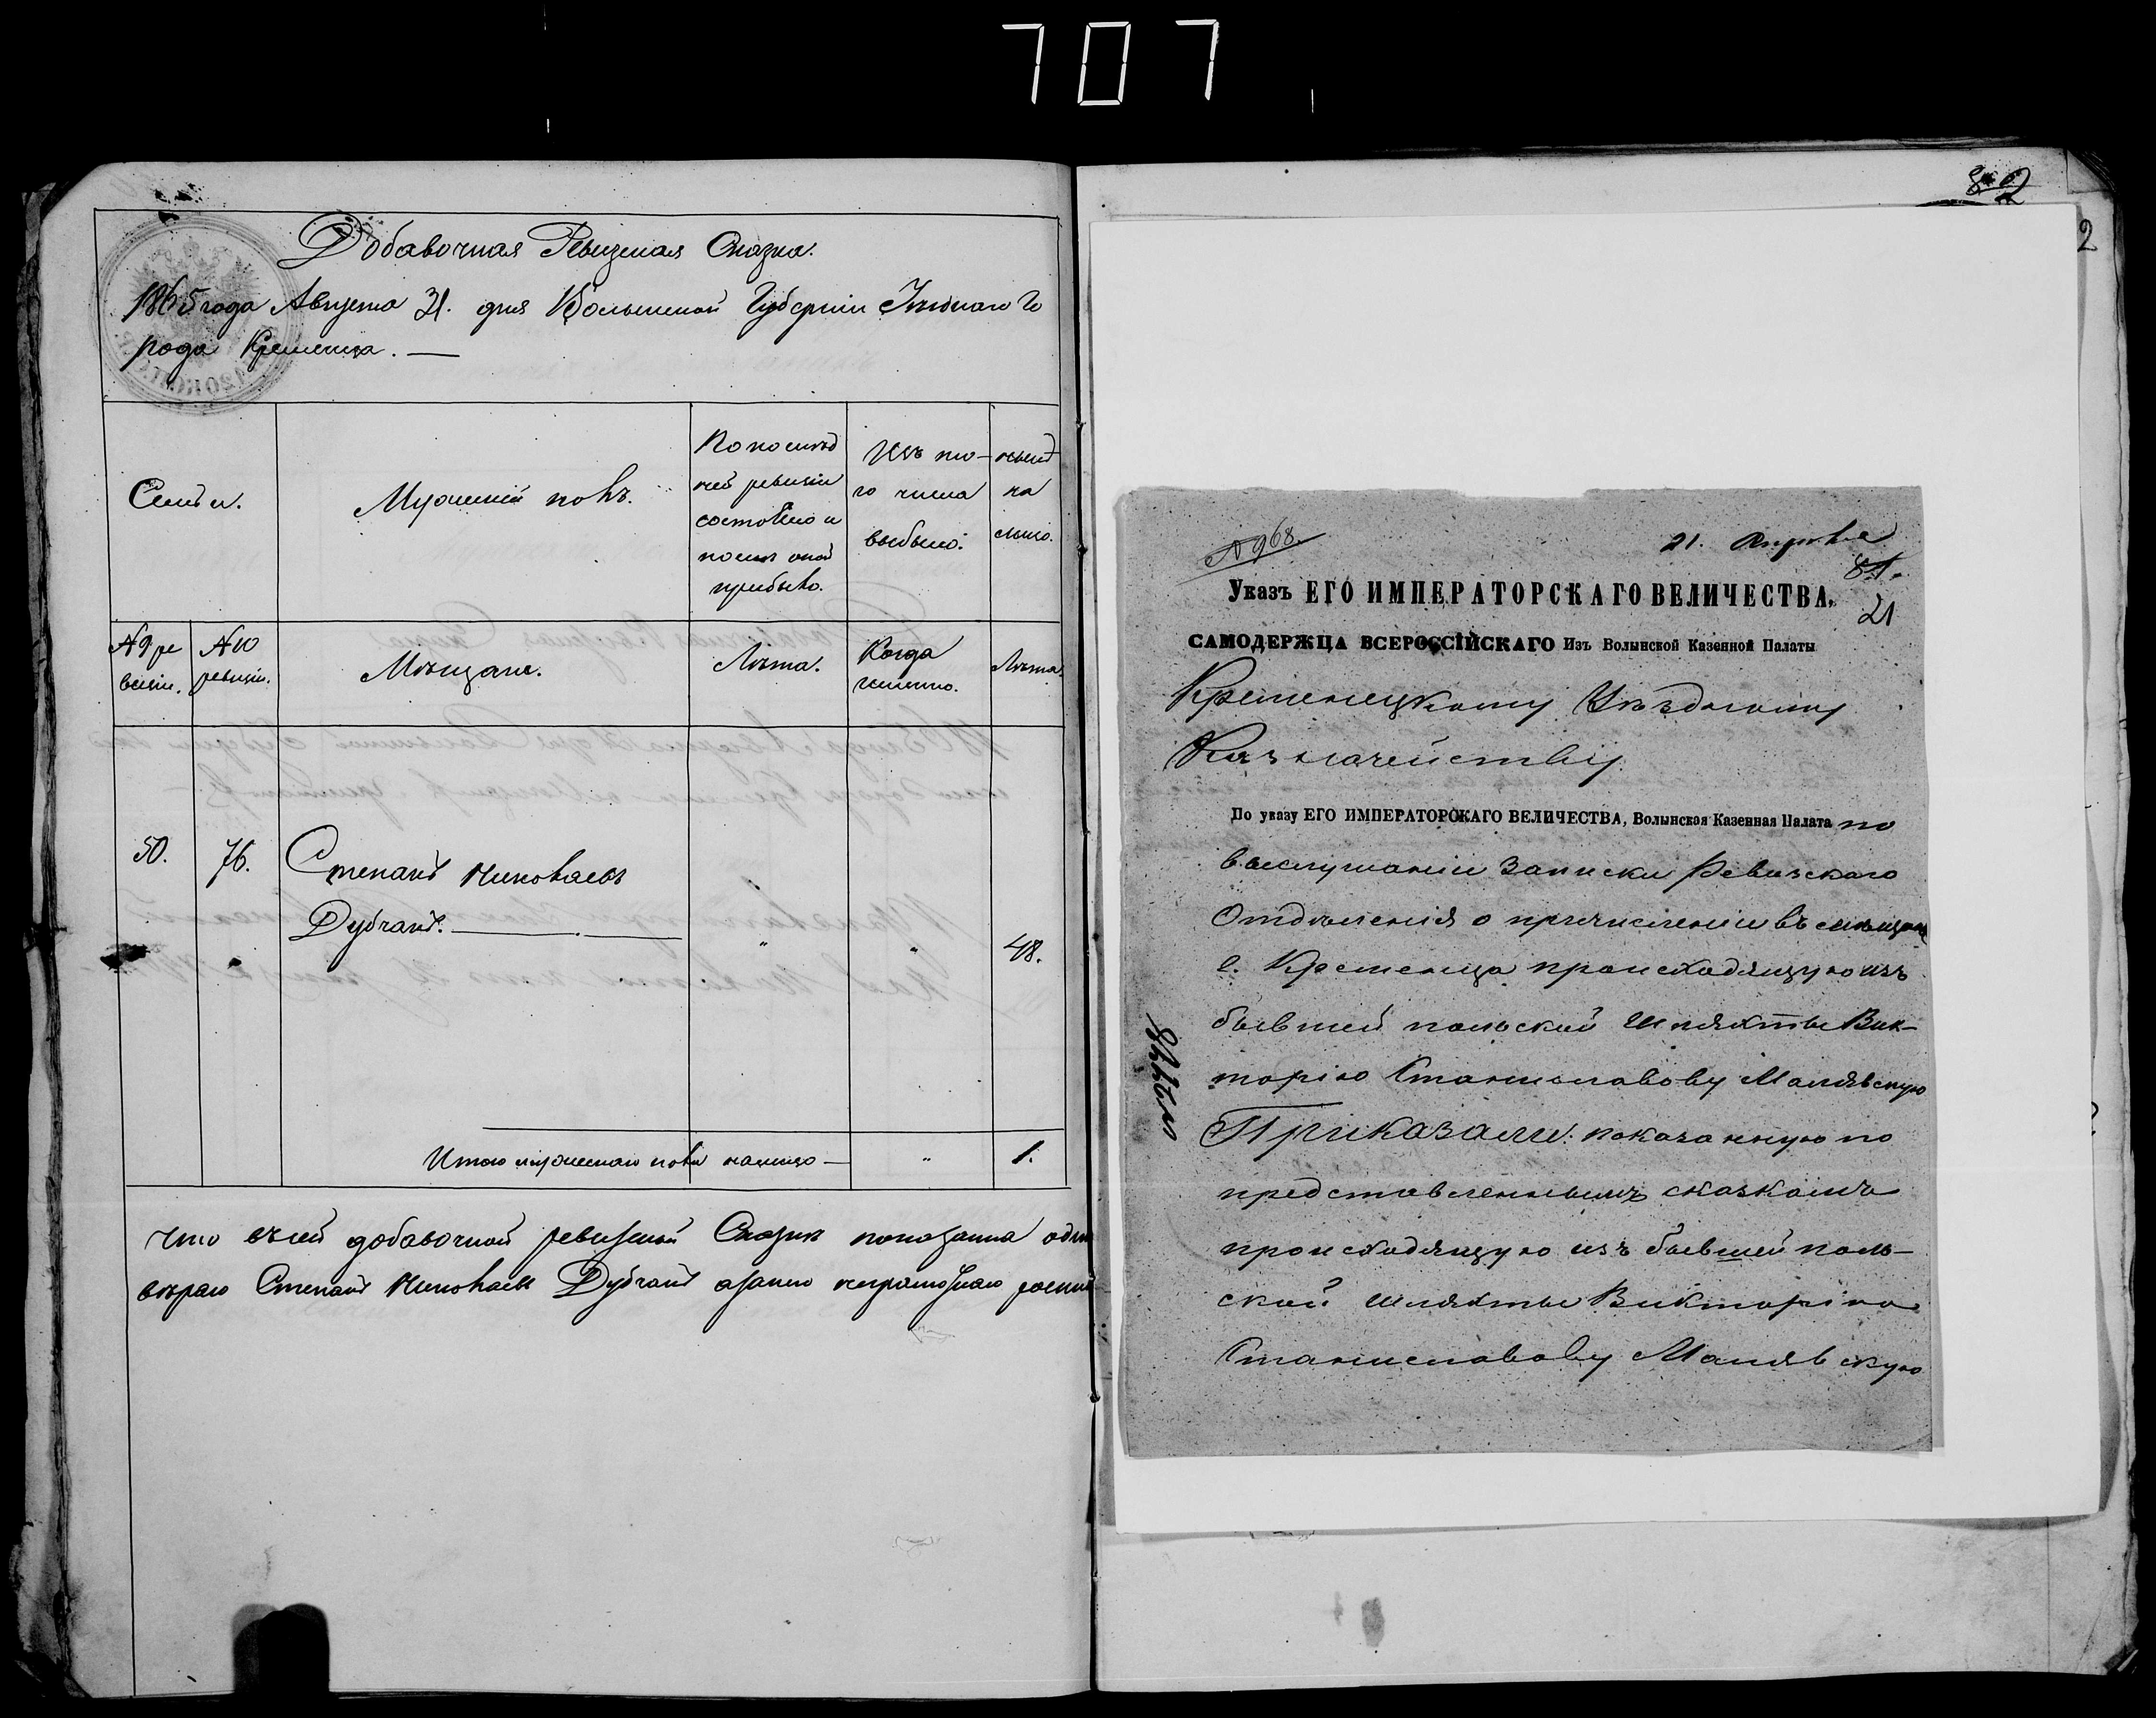 707
Добавочная Ревизская Сказка.
1865 года Августа 31. дня Волынской Губерніи Уѣзднаго Го
рода Кременца. —
Семьи.
Мужескій полъ.
По послѣд
ней ревизіи
состояло и
послѣ оной
прибыло.
Изъ то-
го числа
выбыло.
на
лицо.
№ 9 ре
визіи.
№ 10
ревизіи.
Мѣщане.
Лѣта.
Когда
именно.
Лѣта.
50.
76.
Степанъ Николаевъ
Дубчакъ.
"
"
48.
Итого мужескаго пола налицо —
"
1.
Что въ сей добавочной ревизской Сказкѣ показанна одна
Степанъ Николаевъ Дубчакъ а за него неграмотнаго
82
2
№ 968.
21. Апрѣля
81.
21
Указъ ЕГО ИМПЕРАТОРСКАГО ВЕЛИЧЕСТВА,
САМОДЕРЖЦА ВСЕРОССІЙСКАГО Изъ Волынской Казенной Палаты
Кременецкому Уѣздному
Казначейству
По указу ЕГО ИМПЕРАТОРСКАГО ВЕЛИЧЕСТВА, Волынская Казенная Палата по
выслушаніи записки Ревизскаго
Отдѣленія о причисленіи въ мѣщане
г. Кременца происходящую изъ
бывшей польской шляхты Вик-
торію Станиславову Малявскую
Приказали: показанную по
представленнымъ сказкамъ
происходящую изъ бывшей поль-
ской шляхты Викторію
Станиславову Малявскую